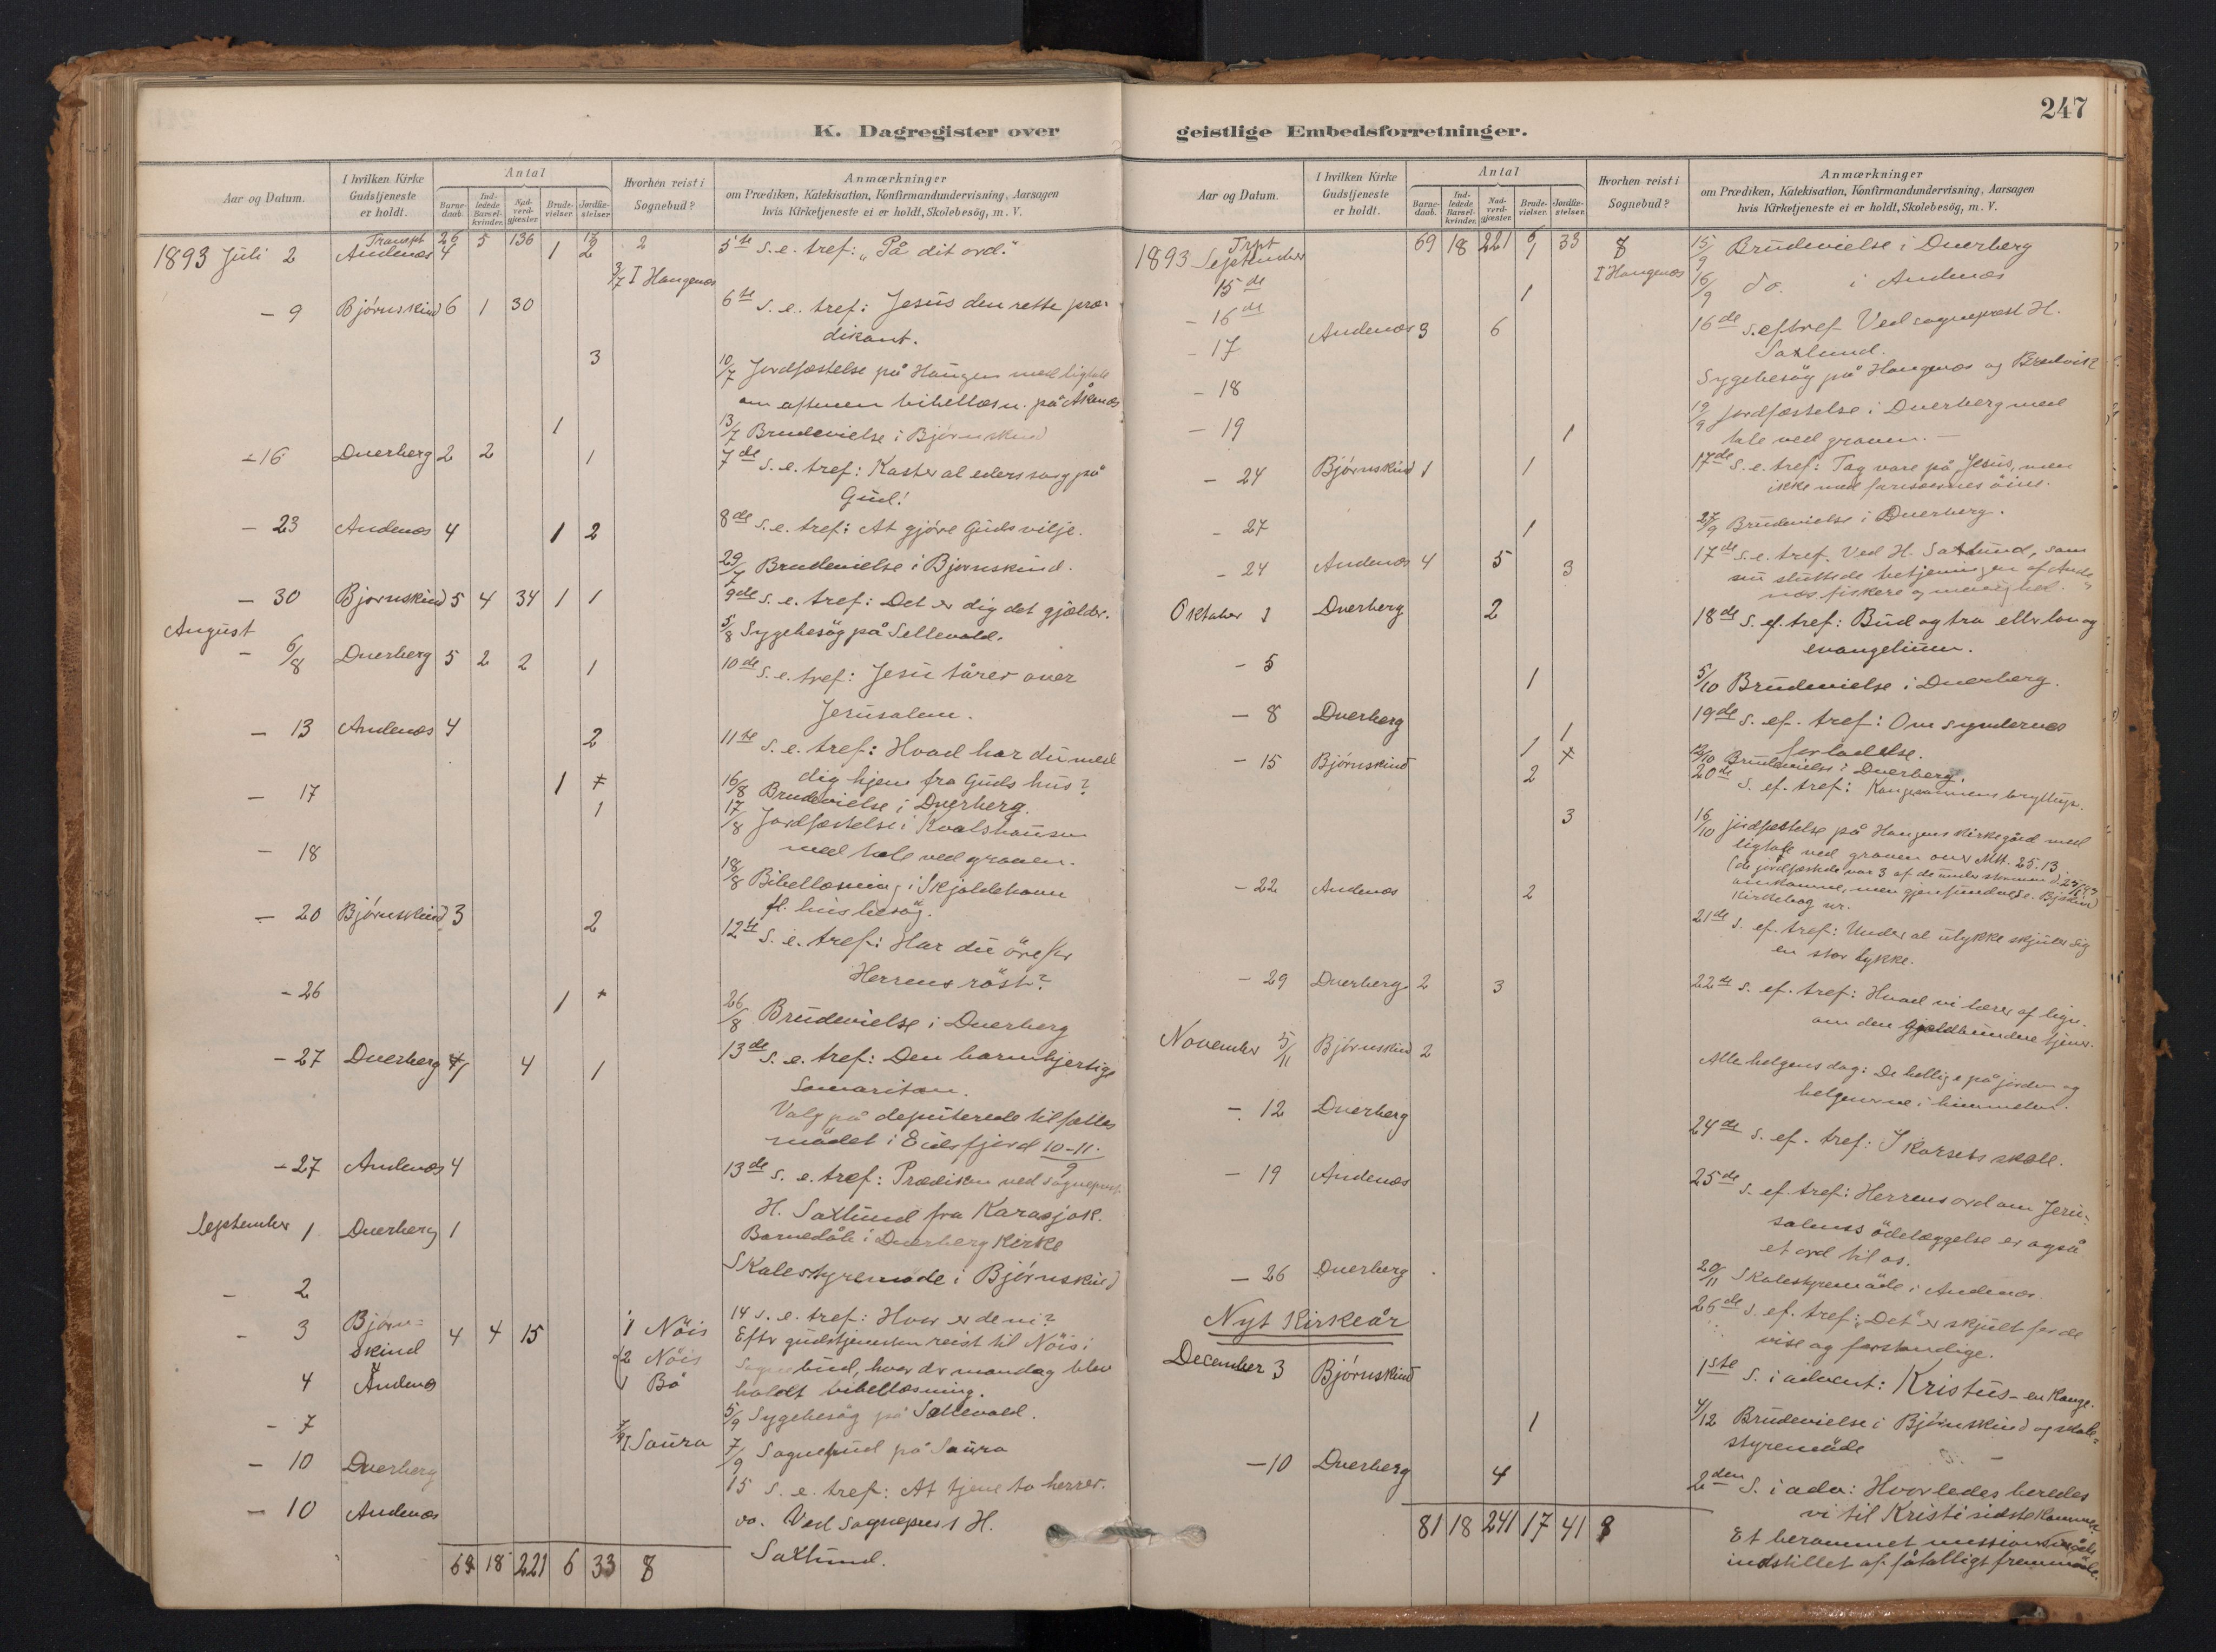 K. Dagregister over
Aar og Datum.
I hvilken Kirke Gudstjeneste er holdt.
Antal
Barne-daab.
Ind-ledede Barsel-kvinder.
Nad-verd-gjæster.
Brude-vielser.
Jordfæ-stelser.
Hvorhen reist i Sognebud?
Anmærkninger
om Prædiken, Katekisation, Konfirmandundervisning, Aarsagen
hvis Kirketjeneste ei er holdt, Skolebesög, m. V.
Transpt 26 5 136 17 2
1893 Juli 2 Andenæs 4 1 2 5te s. e. tref: "På dit ord."
3/7 I Haugenæs
- 9 Bjørnskind 6 1 30 6te s. e. tref: Jesus den rette præ-
dikant.
3 10/7 Jordfæstelse på Haugen med ligtale
om aftenen bibellæsn. på Åknes
1 13/7 Brudevielse i Bjørnskind
- 16 Dverberg 2 2 1 7de s. e. tref: Kaster al eders sorg på
Gud!
- 23 Andenæs 4 1 2 8de s. e. tref: At gjöre Guds vilje.
29/7 Brudevielse i Bjørnskind.
- 30 Bjørnskind 5 4 34 1 1 9de s. e. tref: Det er dig det gjælder.
5/8 Sygebesög på Sellevold.
August
- 6/8 Dverberg 5 2 2 1 10de s. e. tref: Jesu tårer over
Jerusalem.
- 13 Andenæs 4 2 11te s. e. tref: Hvad har du med
dig hjem fra Guds hus?
1 16/8 Brudevielse i Dverberg.
- 17 1 17/8 Jordfæstelse i Kvalshausen
med tale ved graven.
- 18 18/8 Bibellæsning i Skjoldehavn
fl. husbesög.
- 20 Bjørnskind 3 2 12te s. e. tref: Har du öre for
Herrens röst?
- 26 1 26/8 Brudevielse i Dverberg
- 27 Dverberg 1 4 1 13de s. e. tref: Den barmhjertige
Samaritan.
Valg på deputerede til fælles
mödet i Eidsfjord 10-11/9
- 27 Andenæs 4 13de s. e. tref: Prædiken ved Sognepræst
H. Saxlund fra Karasjok.
September 1 Dverberg 1 Barnedåb i Dverberg Kirke
- 2 Skolestyremöde i Bjørnskind
- 3 Bjørn-
skind 4 4 15 1 Nöis 14 s. e. tref: Hvor er de ni?
Efter gudstjenesten reist til Nöis i
2 Nöis Sognebud, hvor der mandag blev
4 Andenæs 1 Bö holdt bibellæsning.
5/9 Sygebesög på Sellevold.
- 7 7/9 I Saura 7/9 Sognebud på Saura
- 10 Dverberg 15 s. e. tref: At tjene to herrer.
- 10 Andenæs do. Ved Sognepræst H.
Saxlund.
69 18 221 6 33 8
247
geistlige Embedsforretninger.
Aar og Datum.
I hvilken Kirke Gudstjeneste er holdt.
Antal
Barne-daab.
Ind-ledede Barsel-kvinder.
Nad-verd-gjæster.
Brude-vielser.
Jordfæ-stelser.
Hvorhen reist i Sognebud?
Anmærkninger
om Prædiken, Katekisation, Konfirmandundervisning, Aarsagen
hvis Kirketjeneste ei er holdt, Skolebesög, m. V.
Trpt 69 18 221 6 33 8
1893 September
15de 1 I Haugenæs 15/9 Brudevielse i Dverberg
- 16de 1 16/9 do. i Andenæs
- 17 Andenæs 3 6 16de s. ef tref Ved sognepræst H.
Saxlund.
- 18 Sygebesög på Haugenæs og Bredvik
- 19 1 19/9 Jordfæstelse i Dverberg med
tale ved graven. -
- 24 Bjørnskind 1 1 17de s. e. tref: Tag vare på Jesus, men
ikke med farisæernes öine.
- 27 1 27/9 Brudevielse i Dverberg.
- 24 Andenæs 4 5 3 17de s. e. tref. Ved H. Saxlund, som
nu sluttede betjeningen af Ande-
næs fiskere og menighed.
Oktober 1 Dverberg 2 18de s. ef. tref: Bud og tro eller lov og
evangelium.
- 5 1 5/10 Brudevielse i Dverberg.
- 8 Dverberg 1 19de s. ef. tref: Om syndernes
forladelse.
1 Brudevielse i Dverberg.
- 15 Bjørnskind 2 20de s. ef. tref: Kongesønnens bryllup.
3 16/10 jordfæstelse på Haugens Kirkegård med
ligtale ved graven over Mtt. 25. 13
(de jordfæstede var 3 af de under stormen
omkomne, men gjenfundne
Kirkebog nr.
- 22 Andenæs 2 21de s. ef. tref: Under al ulykke skjuler sig
en stor lykke.
- 29 Dverberg 2 3 22de s. ef. tref: Hvad vi lærer af lign.
om den gjældbundne tjener.
November 5/11 Bjørnskind 2 Alle helgens dag: De hellige på jorden og
helgenerne i himmelen.
- 12 Dverberg 24de s. ef. tref: I korsets skole.
- 19 Andenæs 25de s. ef. tref: Herrens ord om Jeru-
salems ödelæggelse er også
et ord til os.
20/11 Skolestyremöde i Andenæs.
- 26 Dverberg 26de s. ef. tref: Det er skjult for de
vise og forstandige.
Nyt Kirkeår
December 3 Bjørnskind 1ste S. i advent: Kristus - en Konge.
1 4/12 Brudevielse i Bjørnskind og skole-
styremöde
- 10 Dverberg 4 2den S. i adv: Hvorledes beredes
vi til Kristi sidste komme?
Et berammet missionsmöde
indstillet af fåtalligt fremmöde.
81 18 241 17 41 8